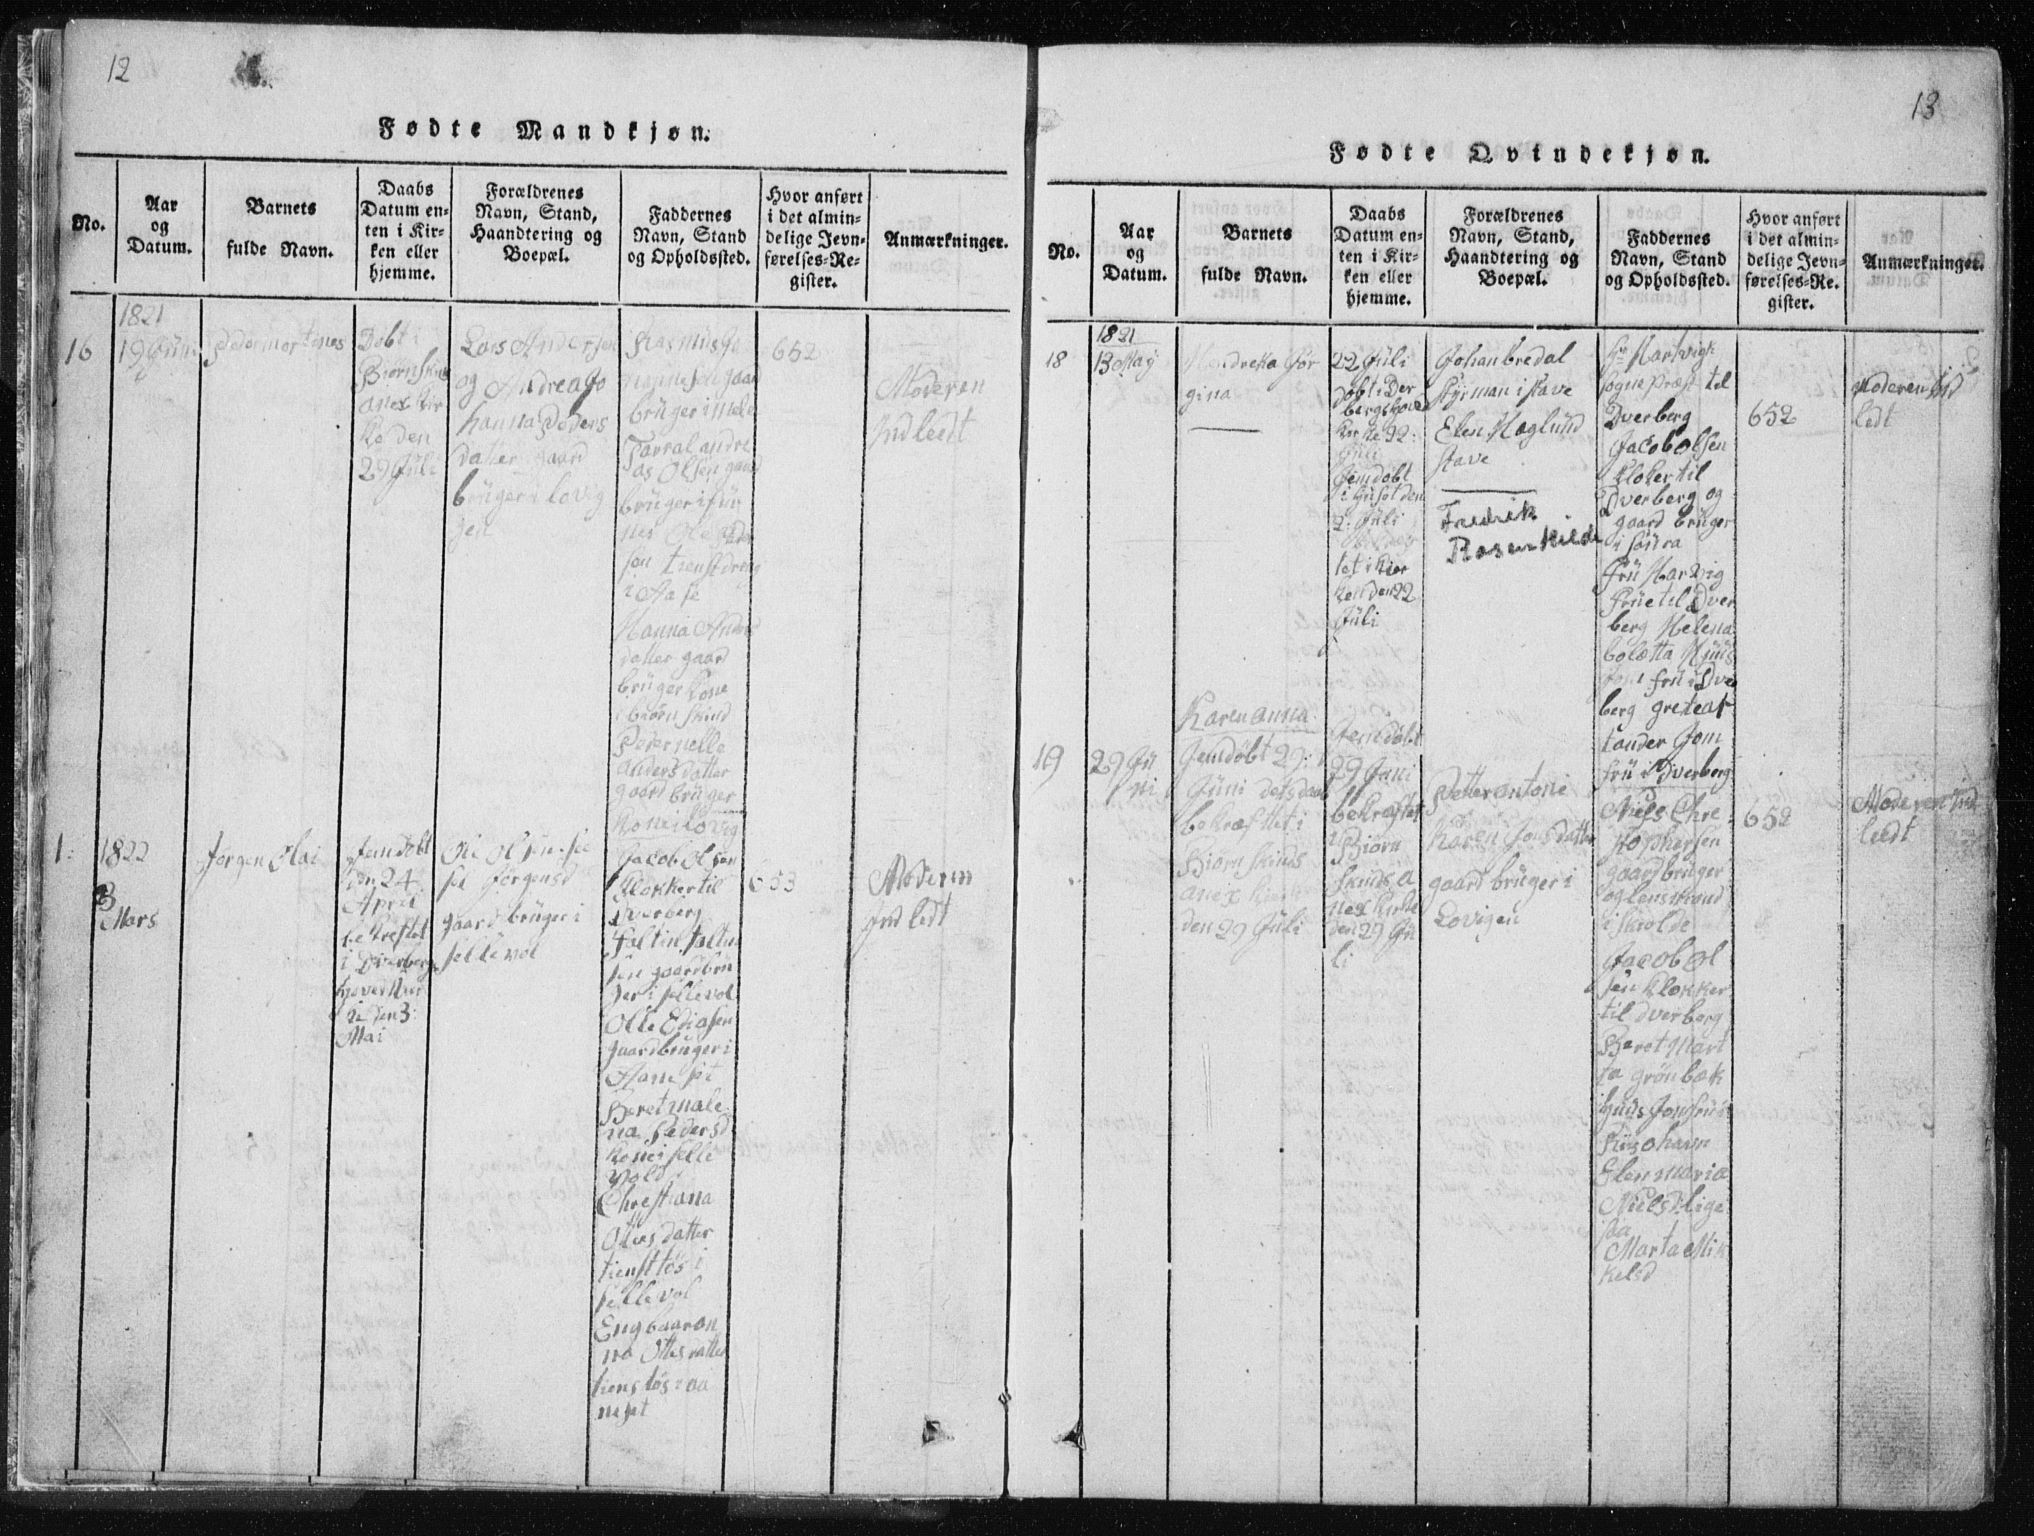 12
Fødte Mandkjøn.
No.
Aar
og
Datum.
Barnets
fulde Navn.
Daabs
Datum en-
ten i Kir-
ken eller
hjemme.
Forældrenes
Navn, Stand,
Haandtering og
Boepæl.
Faddernes
Navn, Stand
og Opholdssted.
Hvor anført
i det almin-
delige Jevn-
førelses-Re-
gister.
Anmærkninger.
1821
16
19 Juni
Pedermortines
Døbt i
Biørnskins
anex kir
ke den
29 Juli
Lars Andersen
og Andrea Jo
hanna Peders
datter gaard
brüger i lovig
jen
Rasmus Jo
hannesen gaar
brüger i mele
andre
as Olsen gaard
brüger i für
nes Ole
sen tienstdreng
i Aase
Hanna Anders
datter gaard
brüger kone
i biørnskind
Peternelle
andersdatter
gaardbrüger
kone i lovig
652
Moderen
Indleedt
1:
1822
3
Mars
Jørgen Olai
Jemdøbt
den 24
April
bekreftet
i Dverbergs
hoved kir
ke den 3:
Mai
Ole Olsen
Jørgensd
gaardbrüger i
sellevol
Jacob Olsen
klokker til
Dverberg
Faltin Faltin
sen gaardbrü
ger i sellevol
Olle Ediasen
gaardbrüger i
Aaneset
Beret male
na Pedersd
kone i selle
vold
Christiana
Ottesdatter
tiensttøs i
sellevol
Engbaar on
na Ottesdatter
tienstøs i aa
neset
653
Moderen
Indledt
13
Fødte Qvindekjøn.
No.
Aar
og
Datum.
Barnets
fulde Navn.
Daabs
Datum en-
ten i Kir-
ken eller
hjemme.
Forældrenes
Navn, Stand,
Haandtering og
Boepæl.
Faddernes
Navn, Stand
og Opholdssted.
Hvor anført
i det almin-
delige Jevn-
førelses-Re-
gister.
Anmærkninger.
1821
18
13 May
Hendreka Jør
gina
22 Juli
døbt i Dver
bergs hoved
kirke 22:
Juli
Jemdøbt
i Huset den
2: Juli
tet i kier
ken den 22
Juli
Johan bredal
styrman i stave
Elen Haglund
stave
Fredrik
Rosenkilde
Hr Hartvig
sognepræst til
Dverberg
Jacob olsen
klokker til
Dverberg og
gaard brüger
i saura
Frü Harvig
früe til Dver
berg Helena
bolætta Hjüis
frü i Dver
berg grete as
tander Jom
frü i Dverberg
652
Moderen Ind
ledt
19
29 Jü
ni
Karen anna
Jemdøbt 29:
Jüni dets daab
bekræftet i
Biørnskinds
anex kirke
den 29 Jüli
Jemdøbt
29 Juni
bekræftet
i Biørn
skinds a
nex kirke
den 29 Jü
li
Petter antoni
Karen Jonsdatter
gaardbrüger i
Lovigen
Niels Chre
stophersen
gaardbrüger
og lensmand
i skiolde
Jacob Ol
sen klokker
til dverberg
Beret Mart
ta grönbæk
huus Jomfrü i
Riisohavn
Elen maria
Nielsd lige
saa
Marta Mik
kelsd
652
Moderen Ind
leedt